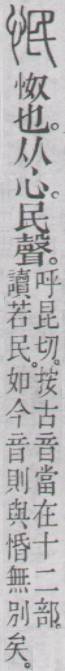 怋 怓也。从心。民聲。
呼昆切。按古音當在十二部。
讀若民。如今音則與惛無別矣。